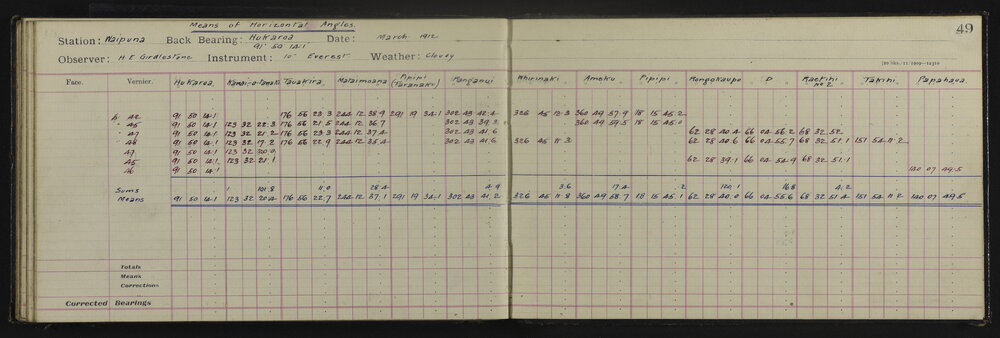 Means of Horizontal Angles. 49
Station: Waipuna Back Bearing: Hukaroa Date: March 1912
91° 50 14.1
Observer: H.E. Girdlestone Instrument: 10" Everest Weather: Cloudy
Face. Vernier. Hukaroa Tauakira Mataimoana Pipipi (Taranaki) Ranganui Whirinaki Ameku Pipipi Rongokaupo D Raetihi No 2 Takihi Papahaua
p. 42 91 50 14.1 176 56 23.3 244 12 38.9 291 19 34.1 302 43 42.4 326 45 12.3 360 49 57.9 18 15 45.2
45 91 50 14.1 123 32 22.3 176 56 21.5 244 12 36.7 302 43 39.3 360 49 59.5 18 15 45.0
47 91 50 14.1 123 32 21.2 176 56 23.3 244 12 37.4 302 43 41.6 62 28 40.4 66 04 56.2 68 32 52
48 91 50 14.1 123 32 17.2 176 56 22.9 244 12 35.4 302 43 41.6 326 45 11.3 62 28 40.6 66 04 55.7 68 32 51.1 151 54 11.2
47 91 50 14.1 123 32 20.0
45 91 50 14.1 123 32 21.1 62 28 39.1 66 04 54.9 68 32 51.1
46 91 50 14.1 140 07 49.5
Sums 1 101.8 11.0 28.4 4.9 3.6 17.4 .2 120.1 16.8 4.2
Means 91 50 14.1 123 32 20.4 176 56 22.7 244 12 37.1 291 19 34.1 302 43 41.2 326 45 11.8 360 49 58.7 18 15 45.1 62 28 40.0 66 04 55.6 68 32 51.4 151 54 11.2 140 07 49.5
Totals
Means
Corrections
Corrected Bearings